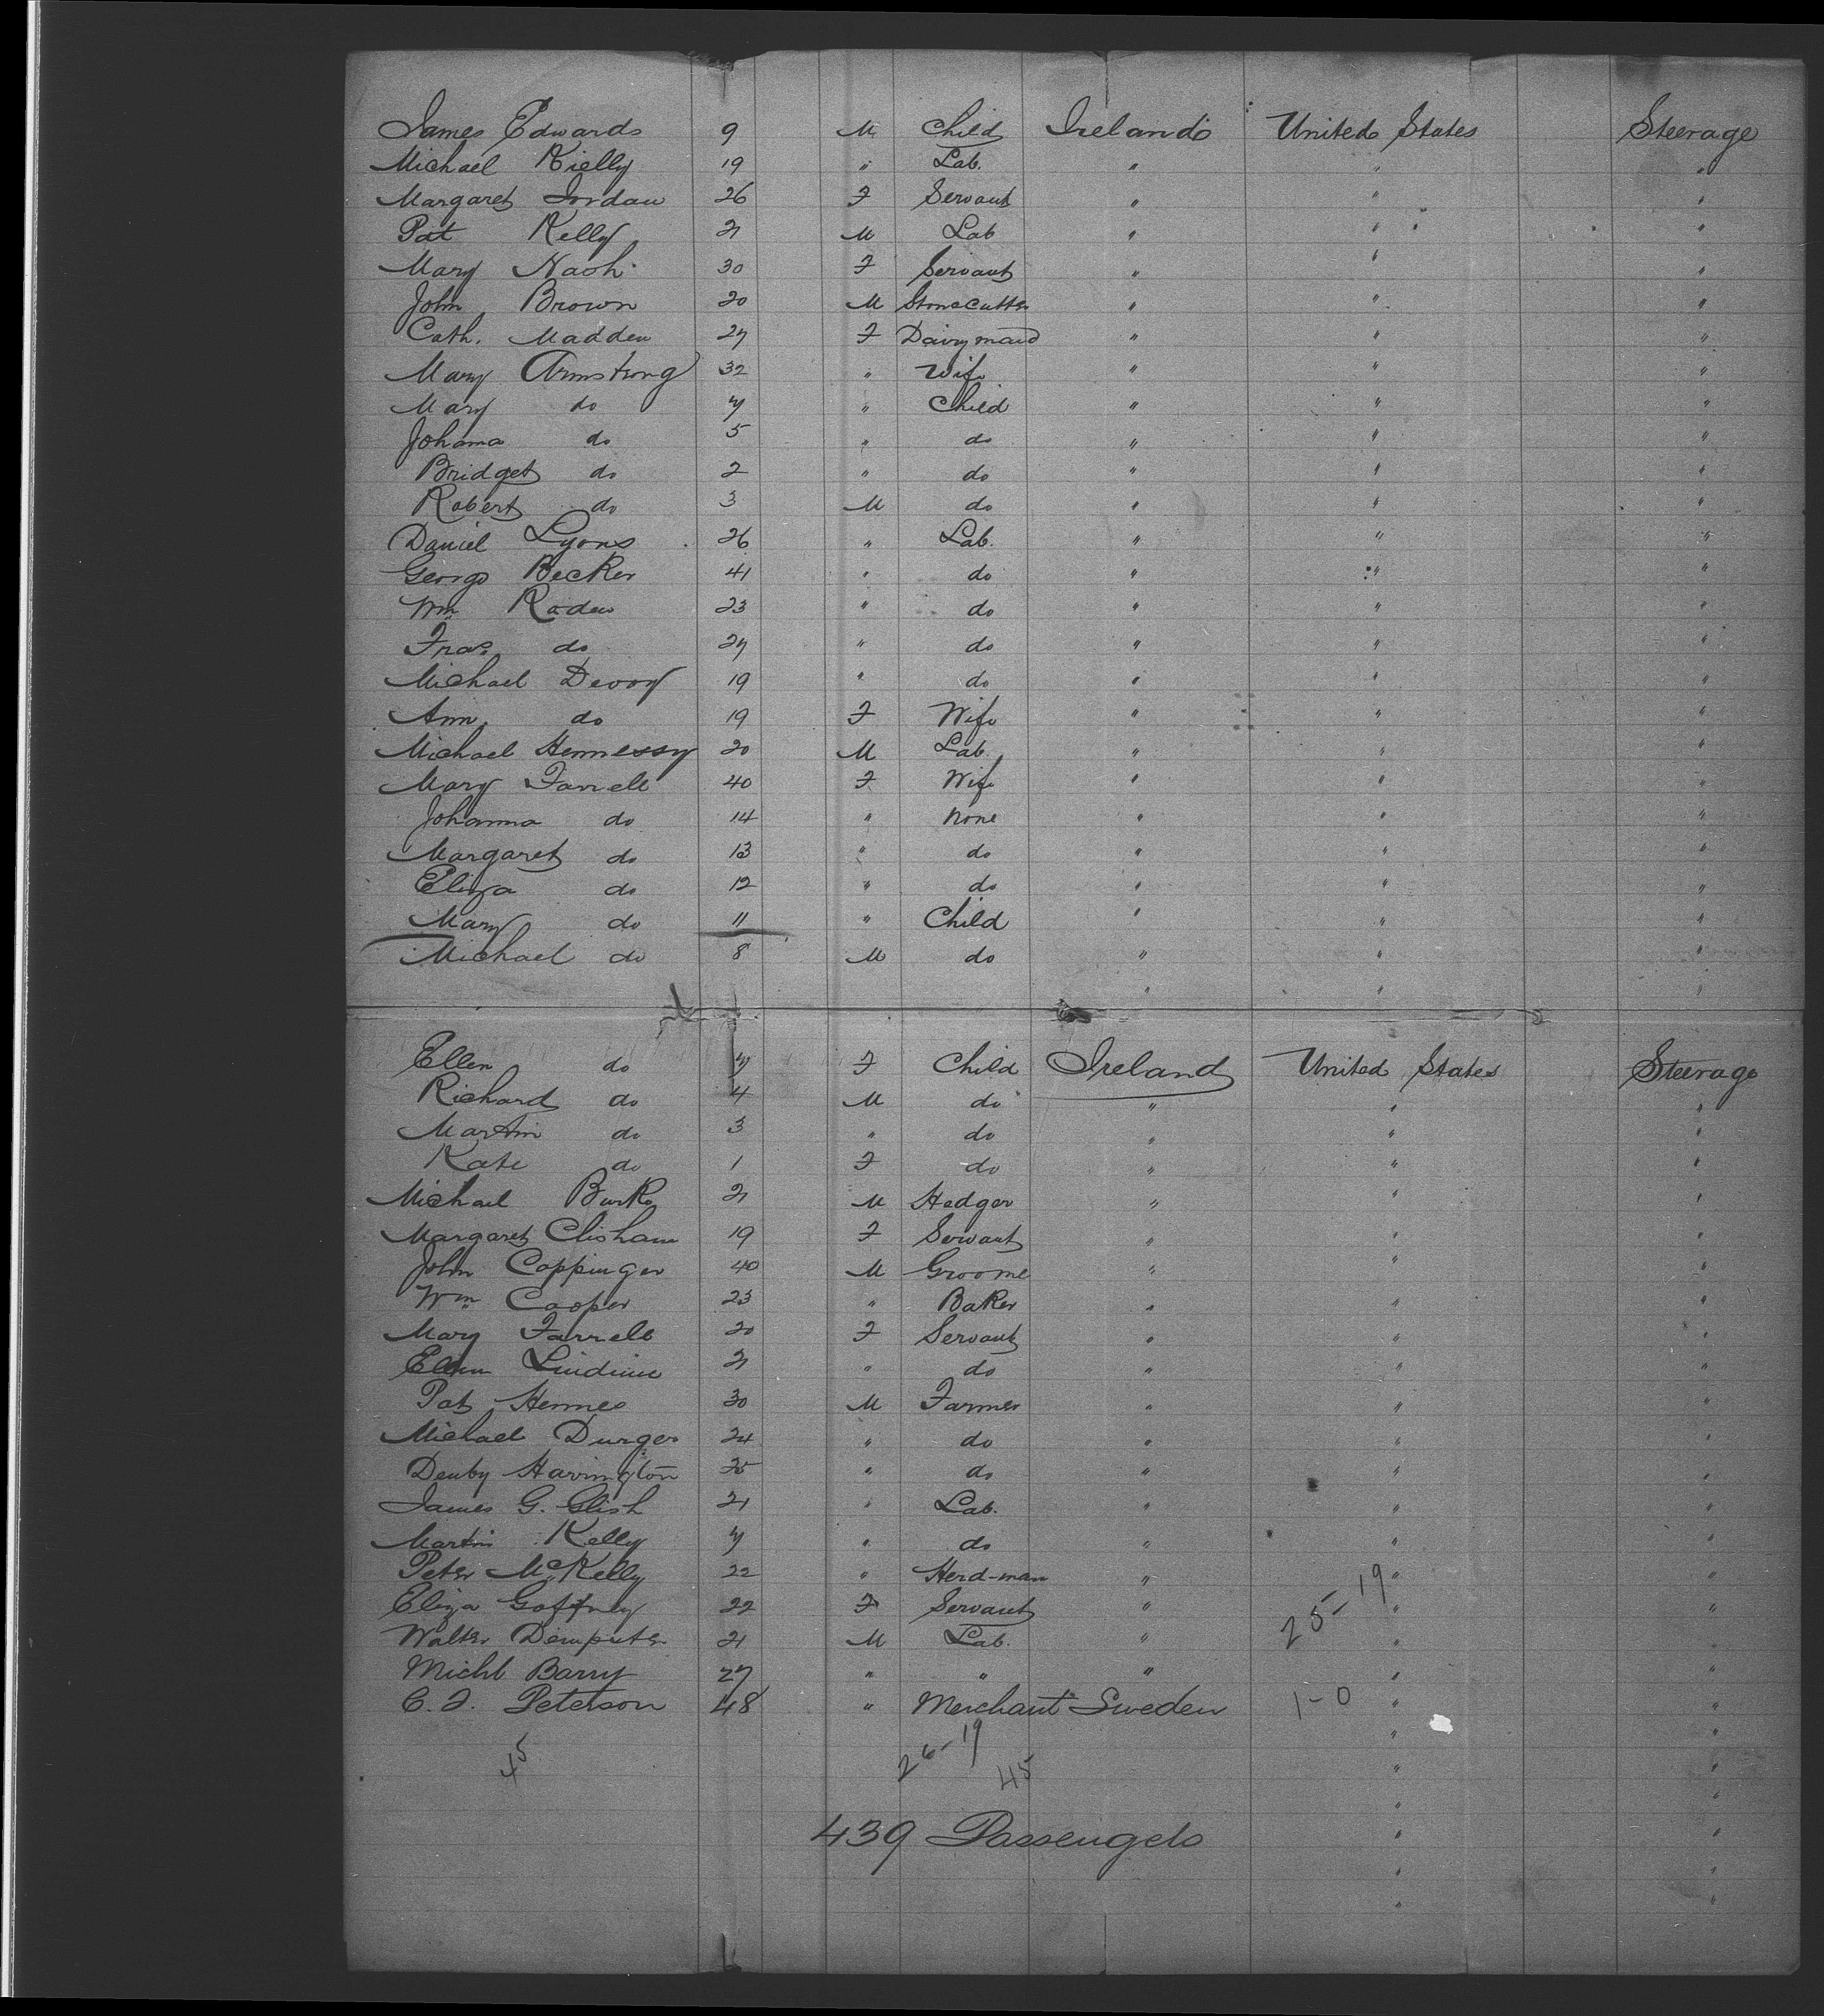 James Edwards 9 M Child Ireland United States Steerage
Michael Kielly 19 " Lab. " " "
Margaret Jordan 26 F Servant " " "
Pat Kelly 21 M Lab " " "
Mary Nash 30 F Servant " " "
John Brown 20 M Stonecutter " " "
Cath. Madden 27 F Dairymaid " " "
Mary Armstrong 32 " Wife " " "
Mary do 7 " Child " " "
Johama do 5 " do " " "
Bridget do 2 " do " " "
Robert do 3 M do " " "
Daniel Lyons 26 " Lab. " " "
George Becker 41 " do " " "
Wm Roden 23 " do " " "
Fras. do 27 " do " " "
Michael Devoy 19 " do " " "
Ann do 19 F Wife " " "
Michael Hennessy 20 M Lab. " " "
Mary Farrell 40 F Wife " " "
Johanna do 14 " None " " "
Margaret do 13 " do " " "
Eliza do 12 " do " " "
Mary do 11 " Child " " "
Michael do 8 M do " " "
" " "
Ellen do 7 F Child Ireland United States Steerage
Richard do 4 M do " " "
Martin do 3 " do " " "
Kate do 1 F do " " "
Michael Burke 21 M Hedger " " "
Margaret Clisham 19 F Servant " " "
John Coppinger 40 M Groome " " "
Wm Cooper 23 " Baker " " "
Mary Farrell 20 F Servant " " "
Ellen 21 " do " " "
Pat 30 M Farmer " " "
Michael 24 " do " " "
Harrington 25 " do " " "
James G. Glish 21 " Lab. " " "
Martin Kelly 7 " do " " "
Peter McKelly 22 " Herd-man " " "
Eliza Gaffney 22 F Servant " 25-19 " "
Walter 21 M Lab. " " "
Michl Barry 27 " " " " "
C. J. Peterson 48 " Merchant Sweden 1-0 " "
45 26-19 45
439 Passengers